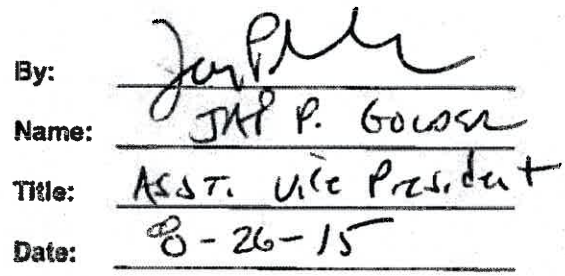 By:
Name: P.
Title: Asst. Vice President
Date: 8-26-15